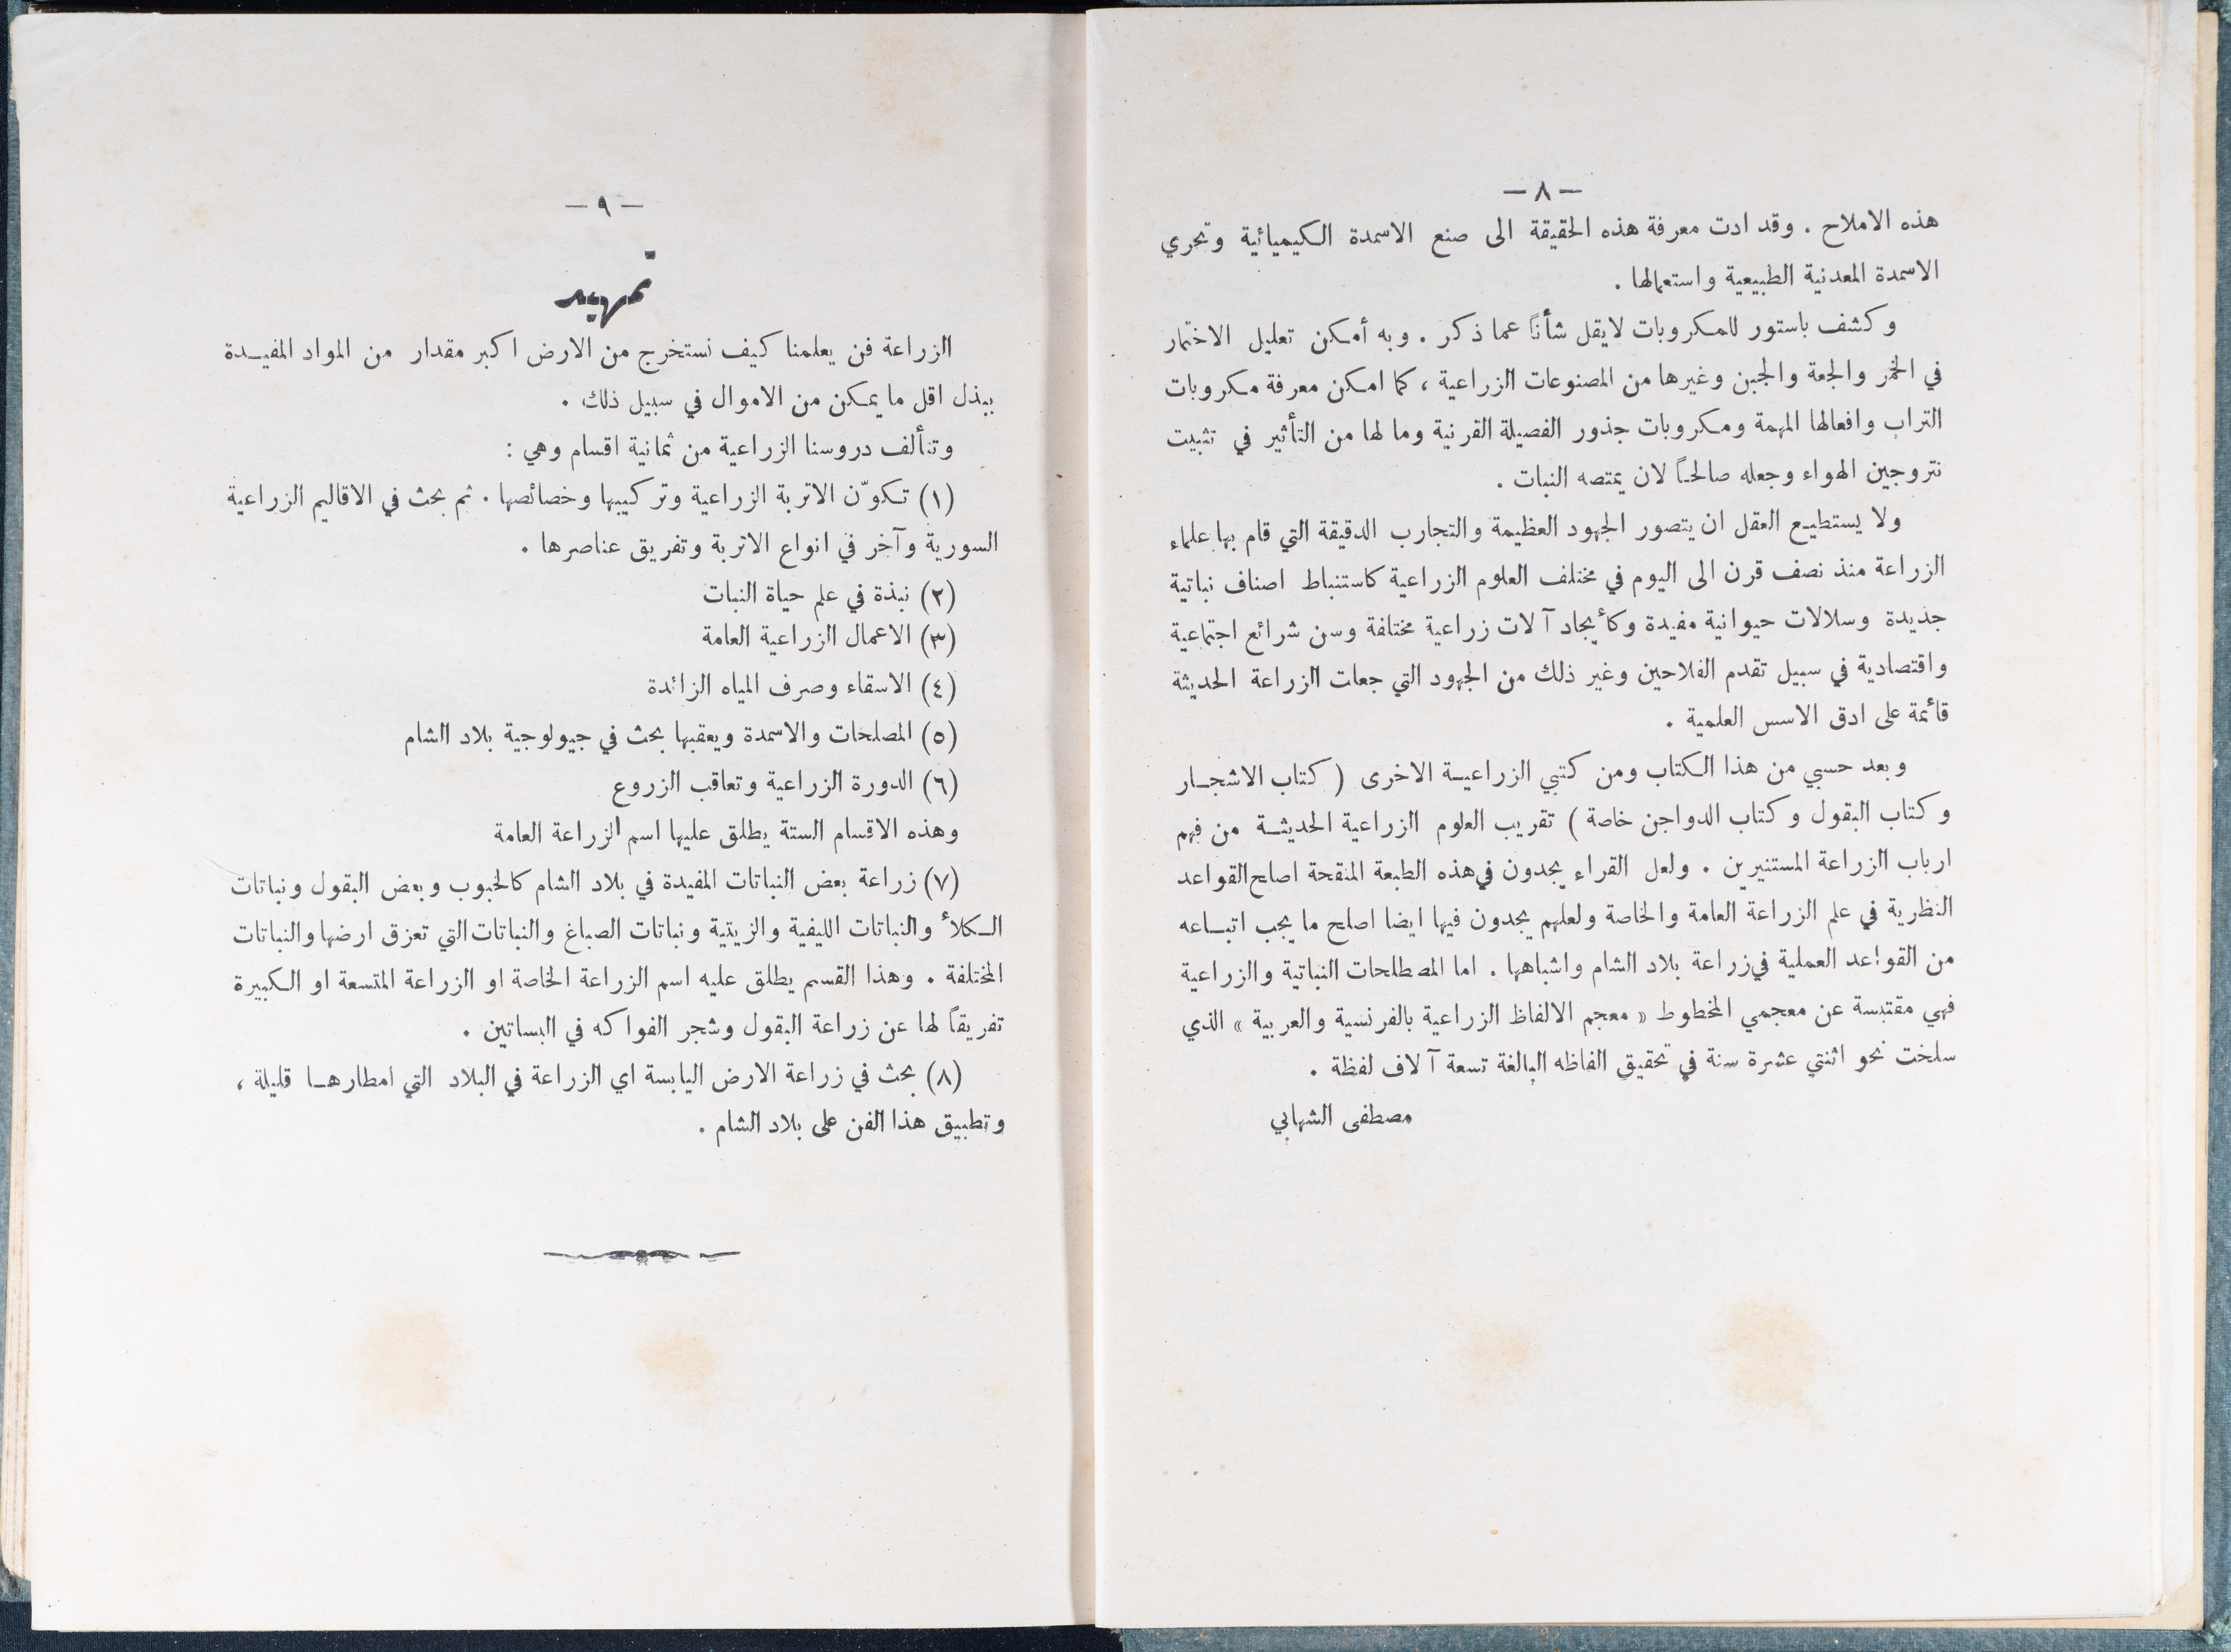 — ٨ —
هذه الاملاح . وقد ادت معرفة هذه الحقيقة الى صنع الاسمدة الكيميائية وتحري
الاسمدة المعدنية الطبيعية واستعمالها .
وكشف باستور للمكروبات لايقل شأناً عما ذكر . وبه أمكن تعليل الاختمار
في الخمر والجعة والجبن وغيرها من المصنوعات الزراعية ، كما امكن معرفة مكروبات
التراب وافعالها المهمة ومكروبات جذور الفصيلة القرنية وما لها من التأثير في تثبيت
نتروجين الهواء وجعله صالحاً لان يمتصه النبات .
ولا يستطيع العقل ان يتصور الجهود العظيمة والتجارب الدقيقة التي قام بها علماء
الزراعة منذ نصف قرن الى اليوم في مختلف العلوم الزراعية كاستنباط اصناف نباتية
جديدة وسلالات حيوانية مفيدة وكأيجاد آلات زراعية مختلفة وسن شرائع اجتماعية
واقتصادية في سبيل تقدم الفلاحين وغير ذلك من الجهود التي جعلت الزراعة الحديثة
قائمة على ادق الاسس العلمية .
وبعد حسبي من هذا الكتاب ومن كتبي الزراعية الاخرى ( كتاب الاشجار
وكتاب البقول وكتاب الدواجن خاصة ) تقريب العلوم الزراعية الحديثة من فهم
ارباب الزراعة المستنيرين . ولعل القراء يجدون في هذه الطبعة المنقحة اصلح القواعد
النظرية في علم الزراعة العامة والخاصة ولعلهم يجدون فيها ايضا اصلح ما يجب اتباعه
من القواعد العملية في زراعة بلاد الشام واشباهها . اما المصطلحات النباتية والزراعية
فهي مقتبسة عن معجمي المخطوط « معجم الالفاظ الزراعية بالفرنسية والعربية » الذي
سلخت نحو اثنتي عشرة سنة في تحقيق الفاظه البالغة تسعة آلاف لفظة .
مصطفى الشهابي
— ٩ —
تمهيد
الزراعة فن يعلمنا كيف نستخرج من الارض اكبر مقدار من المواد المفيدة
ببذل اقل ما يمكن من الاموال في سبيل ذلك .
وتتألف دروسنا الزراعية من ثمانية اقسام وهي :
(١) تكوّن الاتربة الزراعية وتركيبها وخصائصها . ثم بحث في الاقاليم الزراعية
السورية وآخر في انواع الاتربة وتفريق عناصرها .
(٢) نبذة في علم حياة النبات
(٣) الاعمال الزراعية العامة
(٤) الاسقاء وصرف المياه الزائدة
(٥) المصلحات والاسمدة ويعقبها بحث في جيولوجية بلاد الشام
(٦) الدورة الزراعية وتعاقب الزروع
وهذه الاقسام الستة يطلق عليها اسم الزراعة العامة
(٧) زراعة بعض النباتات المفيدة في بلاد الشام كالحبوب وبعض البقول ونباتات
الكلأ والنباتات الليفية والزيتية ونباتات الصباغ والنباتات التي تعزق ارضها والنباتات
المختلفة . وهذا القسم يطلق عليه اسم الزراعة الخاصة او الزراعة المتسعة او الكبيرة
تفريقاً لها عن زراعة البقول وشجر الفواكه في البساتين .
(٨) بحث في زراعة الارض اليابسة اي الزراعة في البلاد التي امطارها قليلة ،
وتطبيق هذا الفن على بلاد الشام .